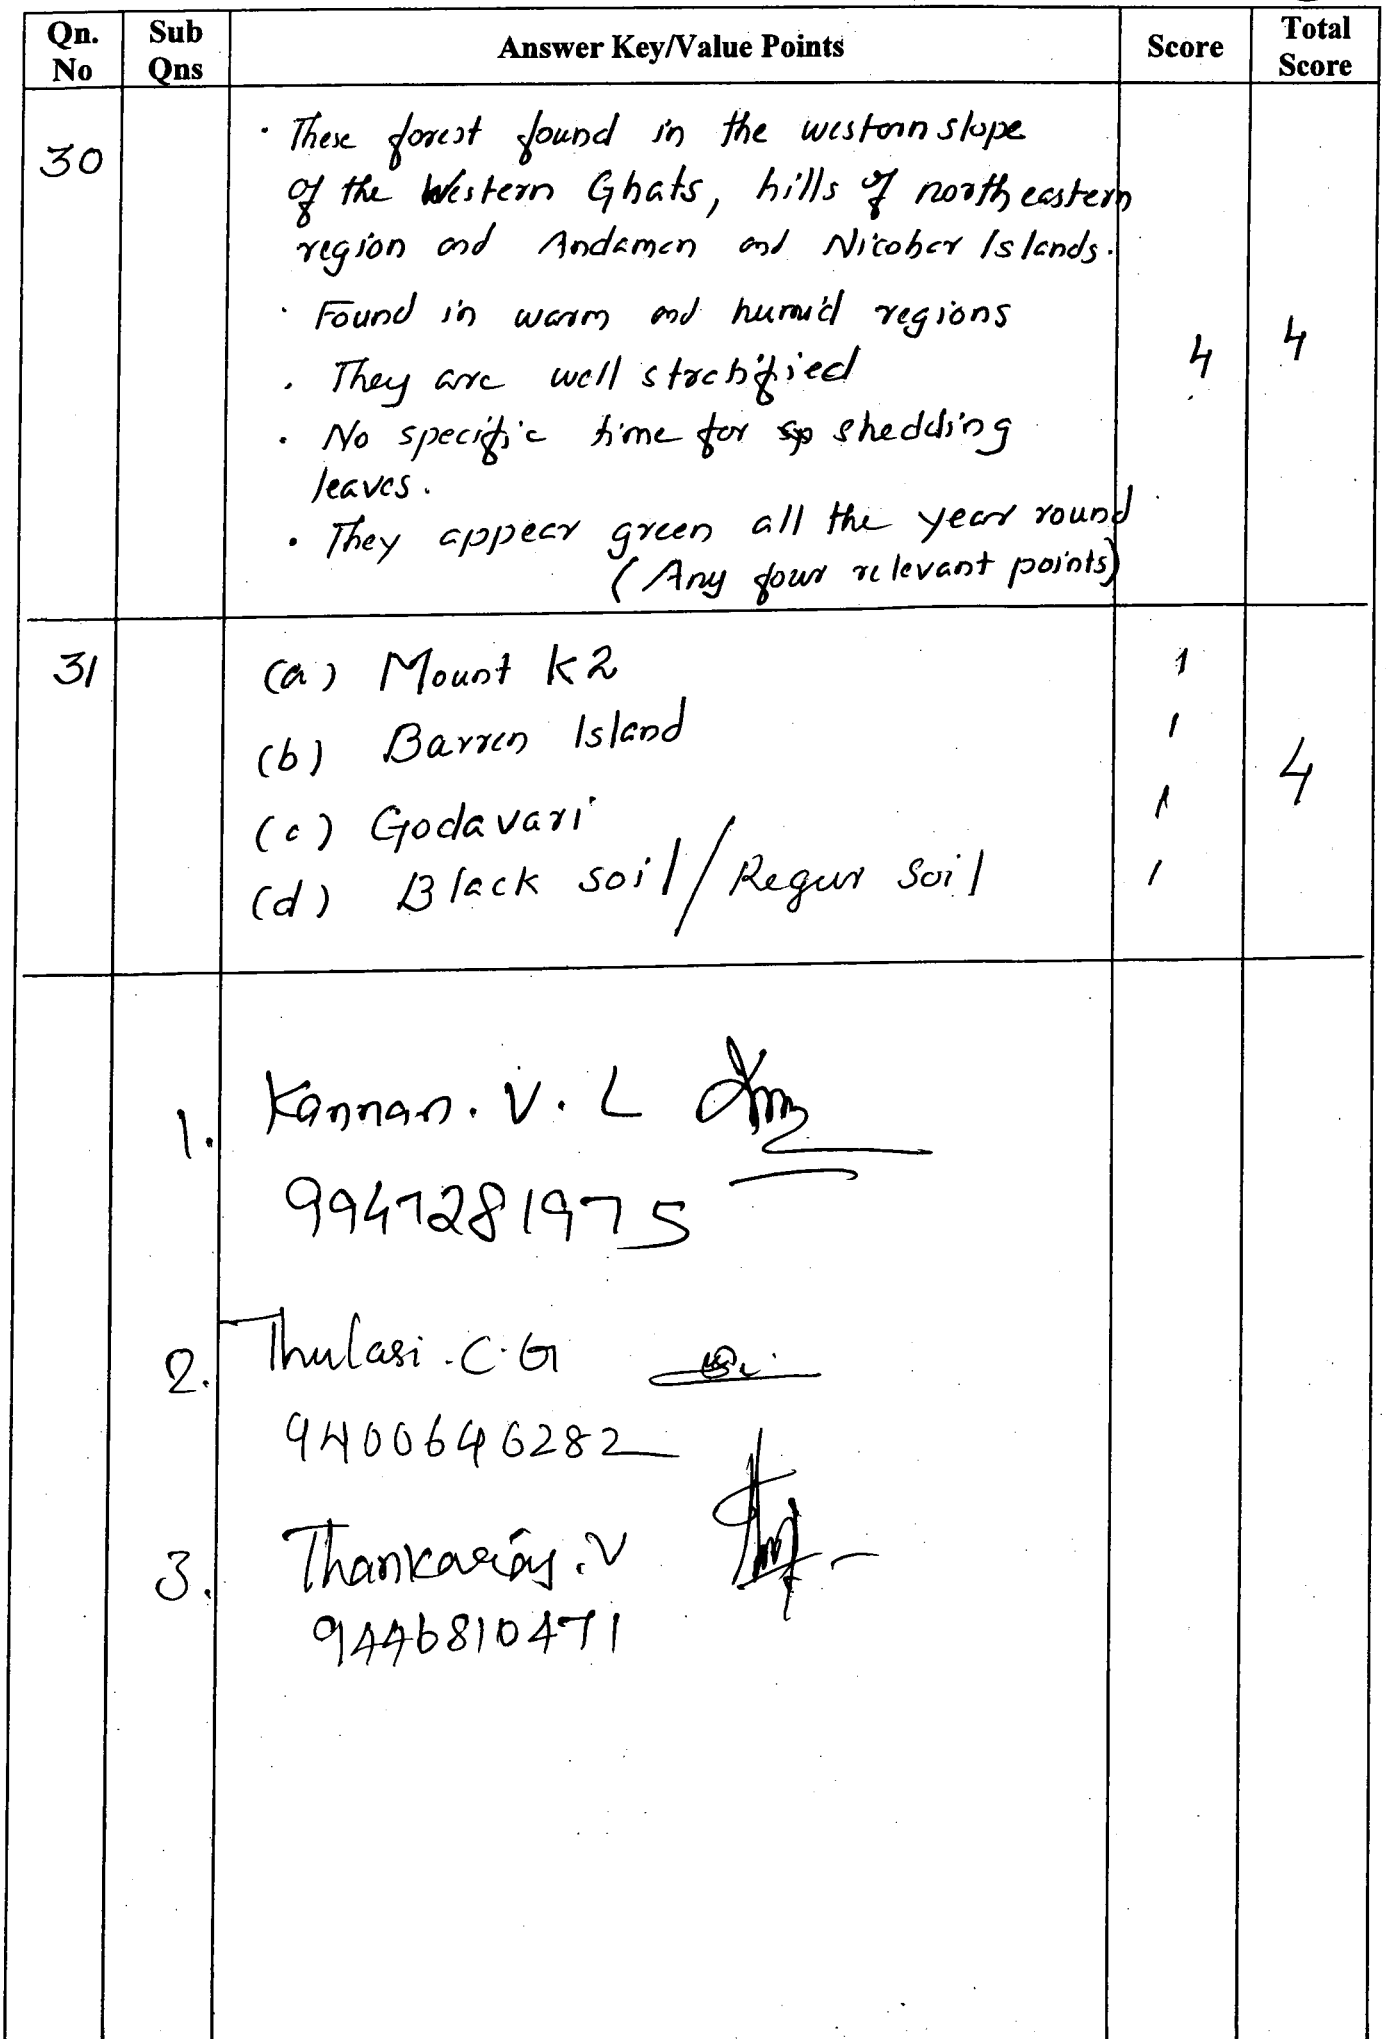 Qn. No Sub Qns Answer Key/Value Points Score Total Score
30
· These forest found in the western slope
of the Western Ghats, hills of north eastern
region and Andaman and Nicobar Islands.
· Found in warm and humid regions
· They are well stratified 4 4
· No specific time for sp shedding
leaves.
· They appear green all the year round
(Any four relevant points)
31 (a) Mount K2 1
(b) Barren Island 1
4
(c) Godavari 1
(d) Black soil / Regur Soil 1
1. Kannan. V. L
9947281975
2. Thulasi . C. G
9400646282
3. V
9446810471